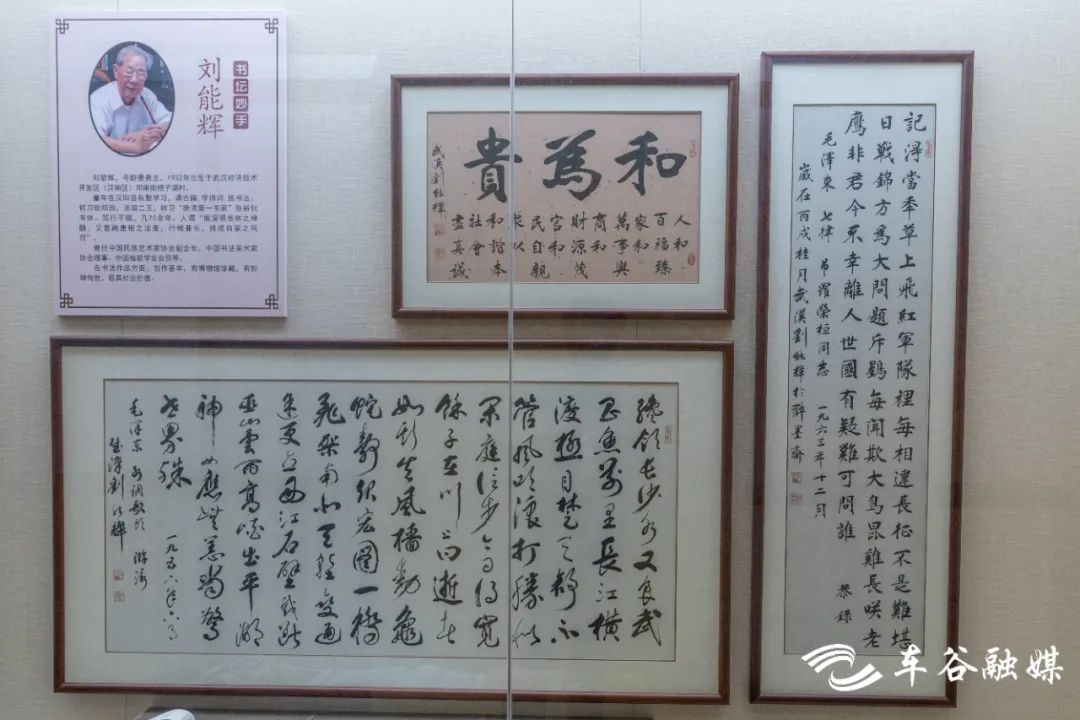 刘能辉
书坛妙手
刘能辉,号龄墨斋主,1932年出生于武汉经济技术
开发区(汉南区)邓南街捞子湖村。
童年在汉阳县私塾学习,诵古籍,学诗词,练书法,
初习欧阳询,法颜二王,转习“晚清第一书家”张裕钊
书体,笃行不辍,凡70余年,人谓“既深得张体之神
髓,又葆融唐楷之法度,行楷兼长,终成自家之风
范”。
曾任中国民族艺术家协会副会长,中国书法美术家
协会理事,中国楹联学会会员等。
在书法作品方面,创作甚丰,有博物馆珍藏,有刻
碑传世,极具社会价值。
和為貴
人和
百福臻
萬事興
商和
財源茂
官和
民自親
求以
和諧本
社會
盡真誠
武漢劉能輝
記得當年草上飛紅軍隊裡每相違長征不是難堪
日戰錦方為大問題斥鷃每聞欺大鳥昆雞長咲老
鷹非君今不幸離人世國有疑難可問誰 恭錄
毛澤東 七律 吊羅榮桓同志 一九六三年十二月
歲在丙戌桂月武漢劉能輝於醉墨齋
纔飲長沙水又食武
昌魚萬里長江橫
渡極目楚天舒不
管風吹浪打勝似
閑庭信步今日得寬
餘子在川上曰逝者
如斯夫風檣動龜
蛇靜起宏圖一橋
飛架南北天塹變通
途更立西江石壁截斷
巫山雲雨高峽出平湖
神女應無恙當驚
世界殊 一九五六年六月
毛澤東 水調歌頭 游泳
武漢劉能輝
车谷融媒